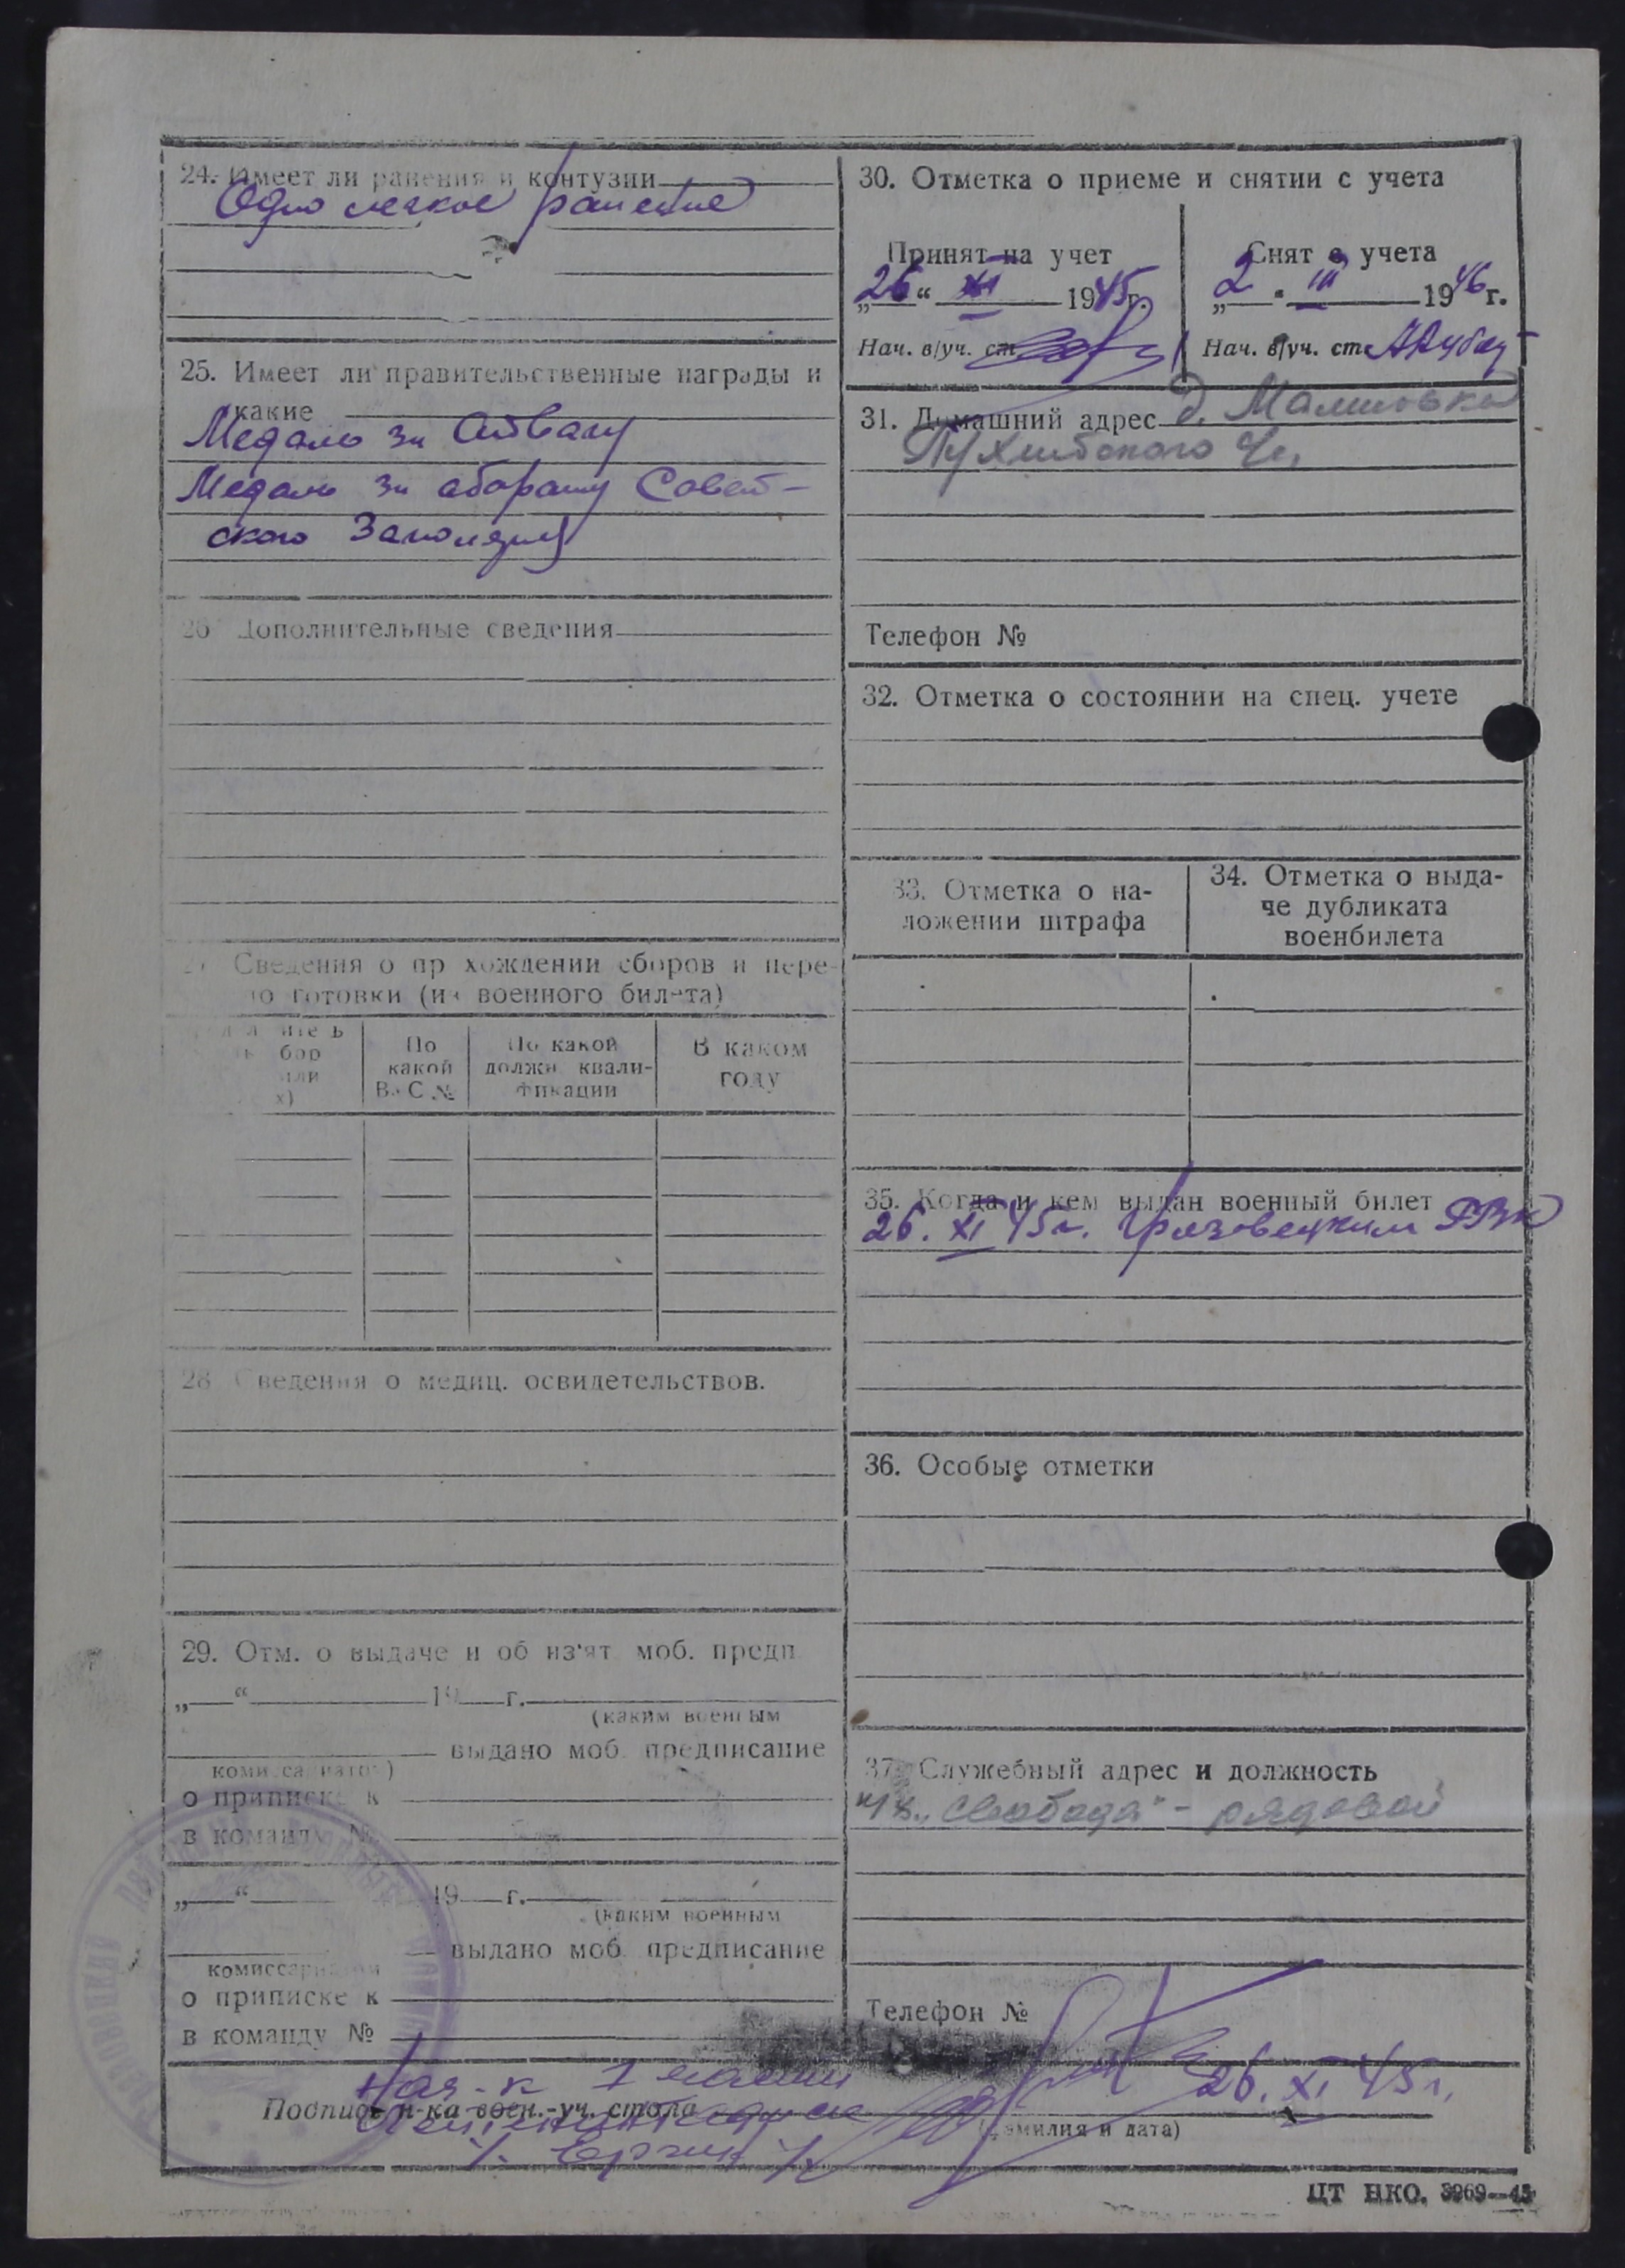 24. Имеет ли ранения и контузии
Одно легкое ранение
25. Имеет ли правительственные награды и
какие
Медаль за Отвагу
Медаль за оборону Совет-
ского Заполярья
26 Дополнительные сведения
27 Сведения о пр хождении сборов и пере-
по готовки (из военного билета)
По
какой
ВУС №
По какой
должн квали-
фикации
В каком
году
28 Сведения о медиц. освидетельствов.
29. Отм. о выдаче и об из'ят моб. предп
„ “ 19 г.
(каким военным
выдано моб. предписание
комиссариатом)
о приписке к
в команду №
„ “ 19 г.
(каким военным
выдано моб. предписание
комиссариатом
о приписке к
в команду №
30. Отметка о приеме и снятии с учета
Принят на учет
„26“ XI 1945г.
Нач. в/уч. ст
Снят с учета
„2“ III 1946г.
Нач. в/уч. ст.
31. Домашний адрес д. Малиновка
Телефон №
32. Отметка о состоянии на спец. учете
33. Отметка о на-
ложении штрафа
34. Отметка о выда-
че дубликата
военбилета
35. Когда и кем выдан военный билет
26. XI 45г. Грязовецким РВК
36. Особые отметки
37. Служебный адрес и должность
„Свобода“ - рядовой
Телефон №
Нач-к 1 части
Подпись н-ка воен.-уч. стола
26. XI 45г.
(фамилия и дата)
ЦТ НКО. 3969—45